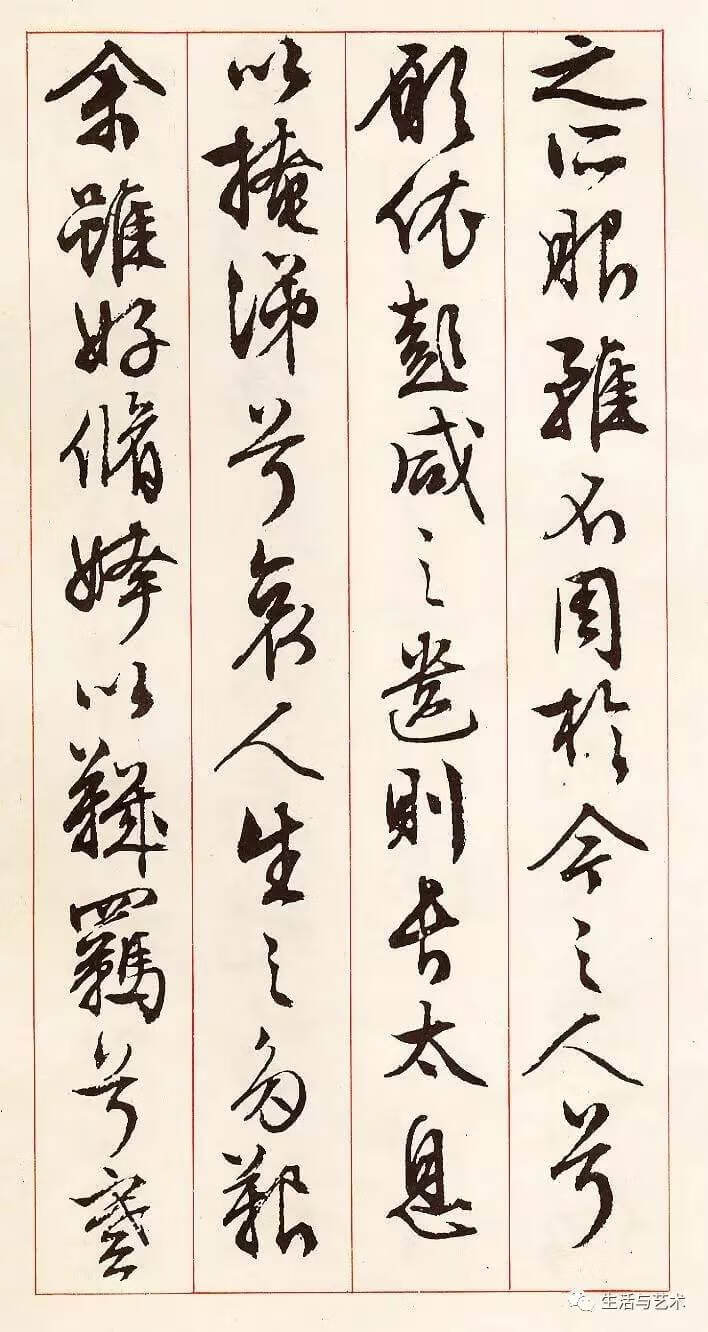 之所服雖不周於今之人兮
願依彭咸之遺則長太息
以掩涕兮哀人生之多艱
余雖好脩姱以鞿羈兮謇
生活与艺术